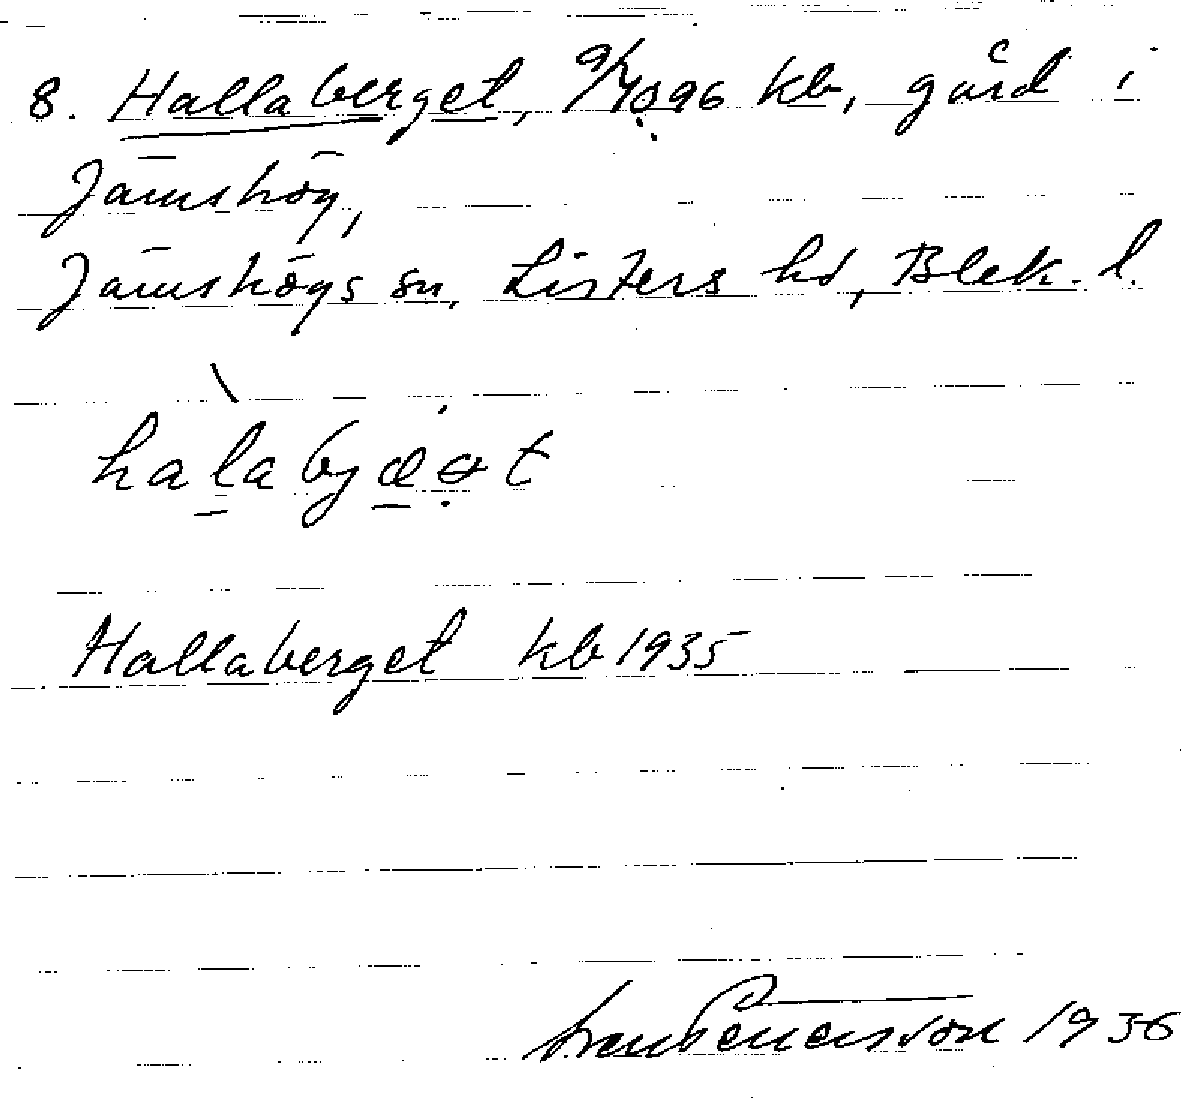 8. Hallaberget, 9/4096 kb, gård i
Jämshög,
Jämshögs sn, Listers hd, Blek. l.
Hallaberget kb 1935
1936